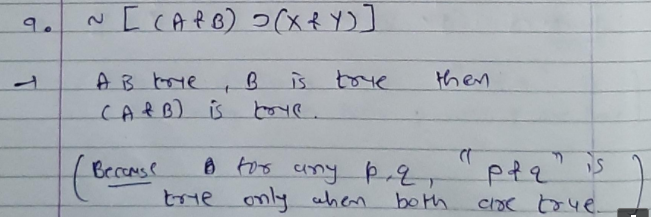 9. ~ [ (A & B) ⊃ (X & Y) ]
→ A B true, B is true then
(A & B) is true.
(Because for any p, q, "p & q" is
true only when both are true.)